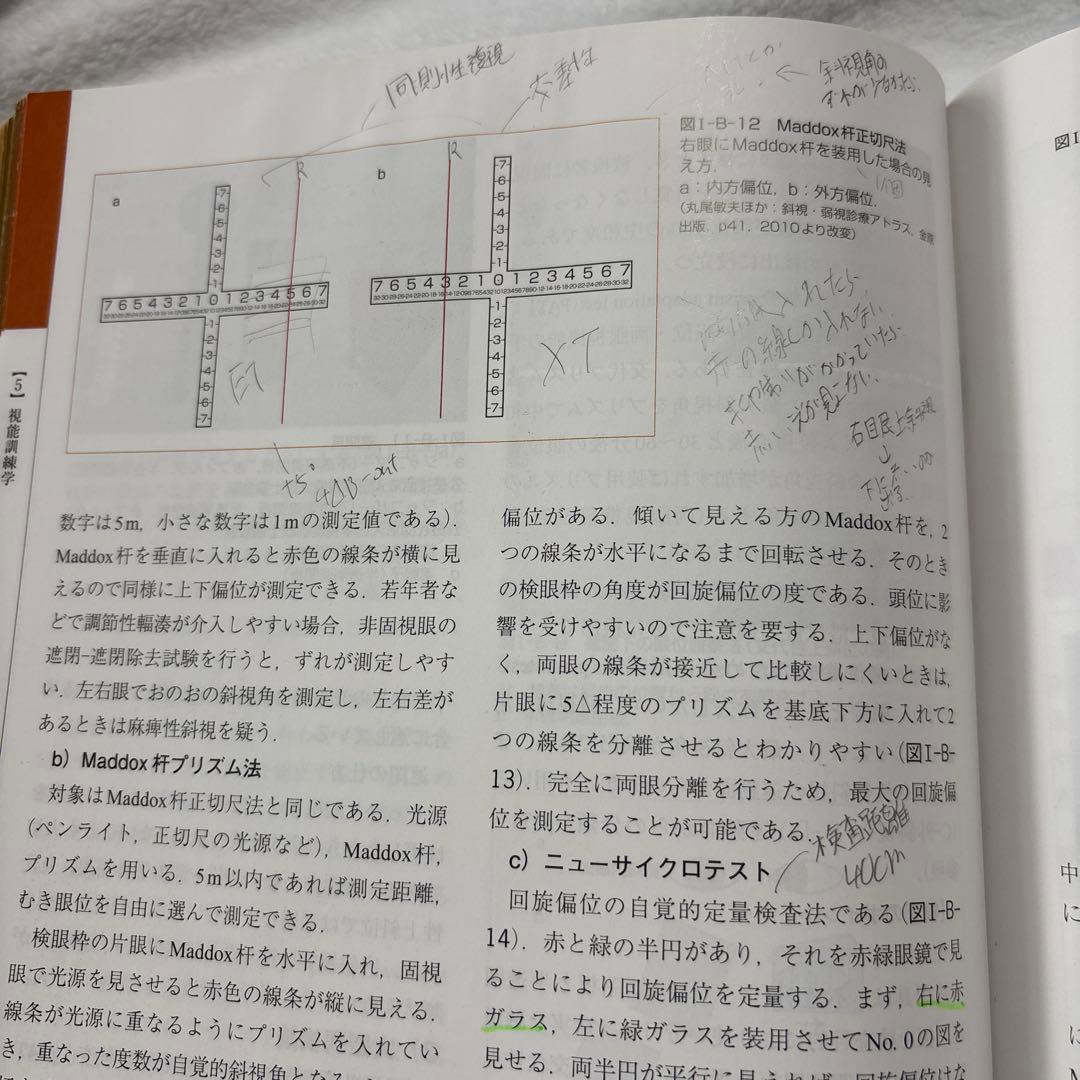 同側性複視
交差性
斜視角の
ずれが
図I-B-12 Maddox杆正切尺法
右眼にMaddox杆を装用した場合の見
え方.
a：内方偏位，b：外方偏位.
(丸尾敏夫ほか：斜視・弱視診療アトラス，金原
出版，p41，2010より改変)
図I
a
R
7 6 5 4 3 2 1 0 1 2 3 4 5 6 7
ET
b
R
7 6 5 4 3 2 1 0 1 2 3 4 5 6 7
XT
入れたら
赤の線しか
赤い
見えない.
右目
+5°
4△B-out
【5】視能訓練学
数字は5m，小さな数字は1mの測定値である).
Maddox杆を垂直に入れると赤色の線条が横に見
えるので同様に上下偏位が測定できる．若年者な
どで調節性輻湊が介入しやすい場合，非固視眼の
遮閉-遮閉除去試験を行うと，ずれが測定しやす
い．左右眼でおのおの斜視角を測定し，左右差が
あるときは麻痺性斜視を疑う.
b）Maddox杆プリズム法
対象はMaddox杆正切尺法と同じである．光源
(ペンライト，正切尺の光源など)，Maddox杆，
プリズムを用いる．5m以内であれば測定距離，
むき眼位を自由に選んで測定できる.
検眼枠の片眼にMaddox杆を水平に入れ，固視
眼で光源を見させると赤色の線条が縦に見える.
線条が光源に重なるようにプリズムを入れてい
き，重なった度数が自覚的斜視角となる
偏位がある．傾いて見える方のMaddox杆を，2
つの線条が水平になるまで回転させる．そのとき
の検眼枠の角度が回旋偏位の度である．頭位に影
響を受けやすいので注意を要する．上下偏位がな
く，両眼の線条が接近して比較しにくいときは，
片眼に5△程度のプリズムを基底下方に入れて2
つの線条を分離させるとわかりやすい(図I-B-
13)．完全に両眼分離を行うため，最大の回旋偏
位を測定することが可能である.
検査距離
40cm
c）ニューサイクロテスト
回旋偏位の自覚的定量検査法である(図I-B-
14)．赤と緑の半円があり，それを赤緑眼鏡で見
ることにより回旋偏位を定量する．まず，右に赤
ガラス，左に緑ガラスを装用させてNo. 0の図を
見せる．両半円が平行に見えれば，回旋偏位はな
中
に